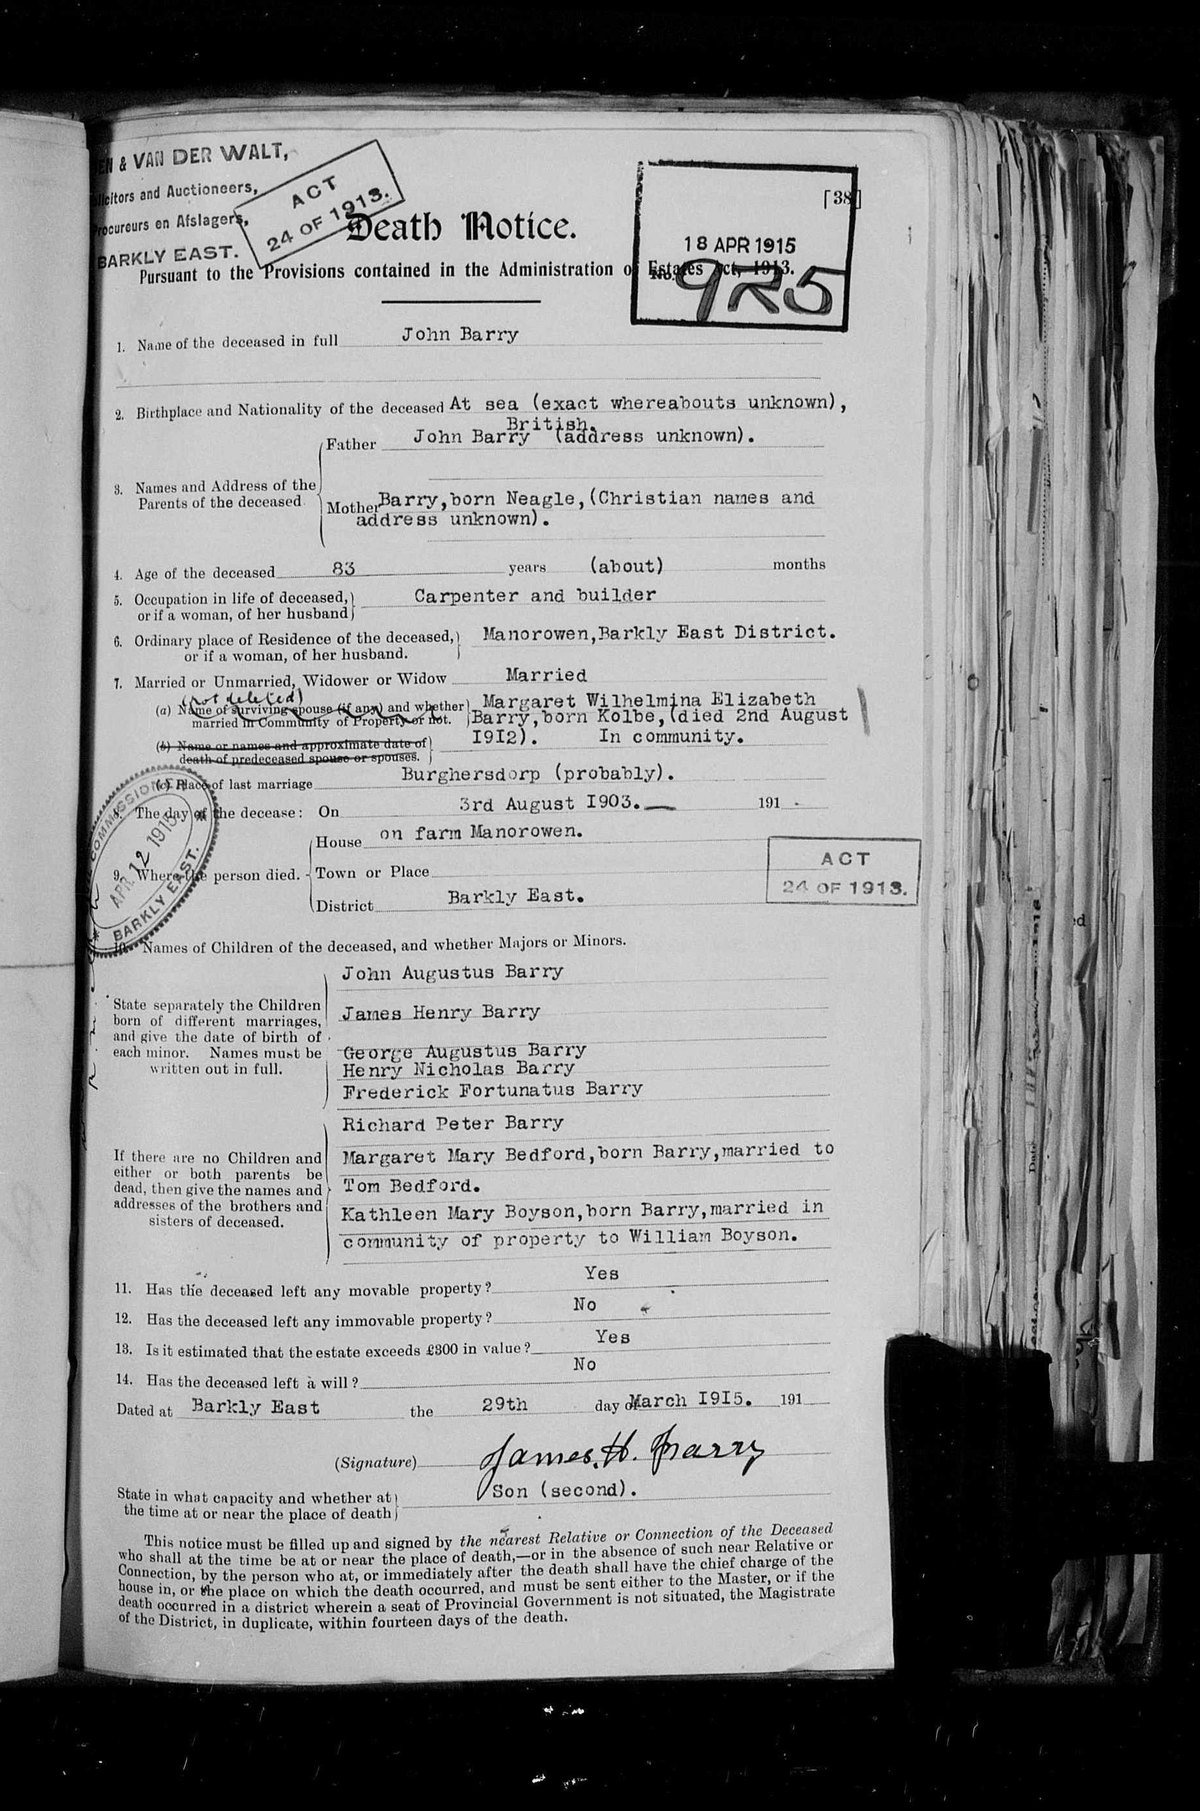 EN & VAN DER WALT,
licitors and Auctioneers,
rocureurs en Afslagers,
BARKLY EAST.
ACT
24 OF 1913.
[38]
18 APR 1915
No. 925
Death Notice.
Pursuant to the Provisions contained in the Administration of Estates Act, 1913.
1. Name of the deceased in full John Barry
2. Birthplace and Nationality of the deceased At sea (exact whereabouts unknown),
British.
3. Names and Address of the Parents of the deceased
Father John Barry (address unknown).
Mother Barry,born Neagle,(Christian names and
address unknown).
4. Age of the deceased 83 years (about) months
5. Occupation in life of deceased, Carpenter and builder
or if a woman, of her husband
6. Ordinary place of Residence of the deceased, Manorowen,Barkly East District.
or if a woman, of her husband.
7. Married or Unmarried, Widower or Widow Married
(not deleted)
(a) Name of surviving spouse (if any) and whether Margaret Wilhelmina Elizabeth
married in Community of Property or not. Barry,born Kolbe,(died 2nd August
(b) Name or names and approximate date of I9I2). In community.
death of predeceased spouse or spouses.
(c) Place of last marriage Burghersdorp (probably).
8. The day of the decease: On 3rd August I903. 191
COMMISSIONER
APR 12 1915
BARKLY EAST.
9. Where the person died. House on farm Manorowen.
Town or Place
District Barkly East.
ACT
24 OF 1913.
10. Names of Children of the deceased, and whether Majors or Minors.
State separately the Children
born of different marriages,
and give the date of birth of
each minor. Names must be
written out in full.
John Augustus Barry
James Henry Barry
George Augustus Barry
Henry Nicholas Barry
Frederick Fortunatus Barry
If there are no Children and
either or both parents be
dead, then give the names and
addresses of the brothers and
sisters of deceased.
Richard Peter Barry
Margaret Mary Bedford,born Barry,married to
Tom Bedford.
Kathleen Mary Boyson,born Barry,married in
community of property to William Boyson.
11. Has the deceased left any movable property? Yes
12. Has the deceased left any immovable property? No
13. Is it estimated that the estate exceeds £300 in value? Yes
14. Has the deceased left a will? No
Dated at Barkly East the 29th day of March I9I5. 191
(Signature) James. H. Barry
State in what capacity and whether at Son (second).
the time at or near the place of death
This notice must be filled up and signed by the nearest Relative or Connection of the Deceased
who shall at the time be at or near the place of death,—or in the absence of such near Relative or
Connection, by the person who at, or immediately after the death shall have the chief charge of the
house in, or the place on which the death occurred, and must be sent either to the Master, or if the
death occurred in a district wherein a seat of Provincial Government is not situated, the Magistrate
of the District, in duplicate, within fourteen days of the death.